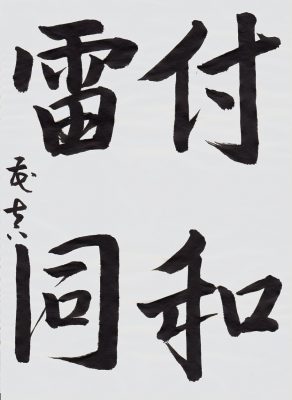 付和
雷同